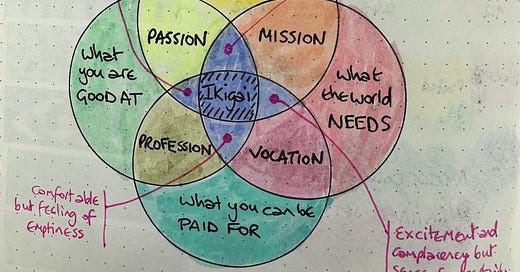 PASSION
MISSION
What
you are
GOOD AT
Ikigai
What
the world
NEEDS
PROFESSION
VOCATION
Comfortable
but feeling of
Emptiness
What you can be
PAID FOR
Excitement and
complacency but